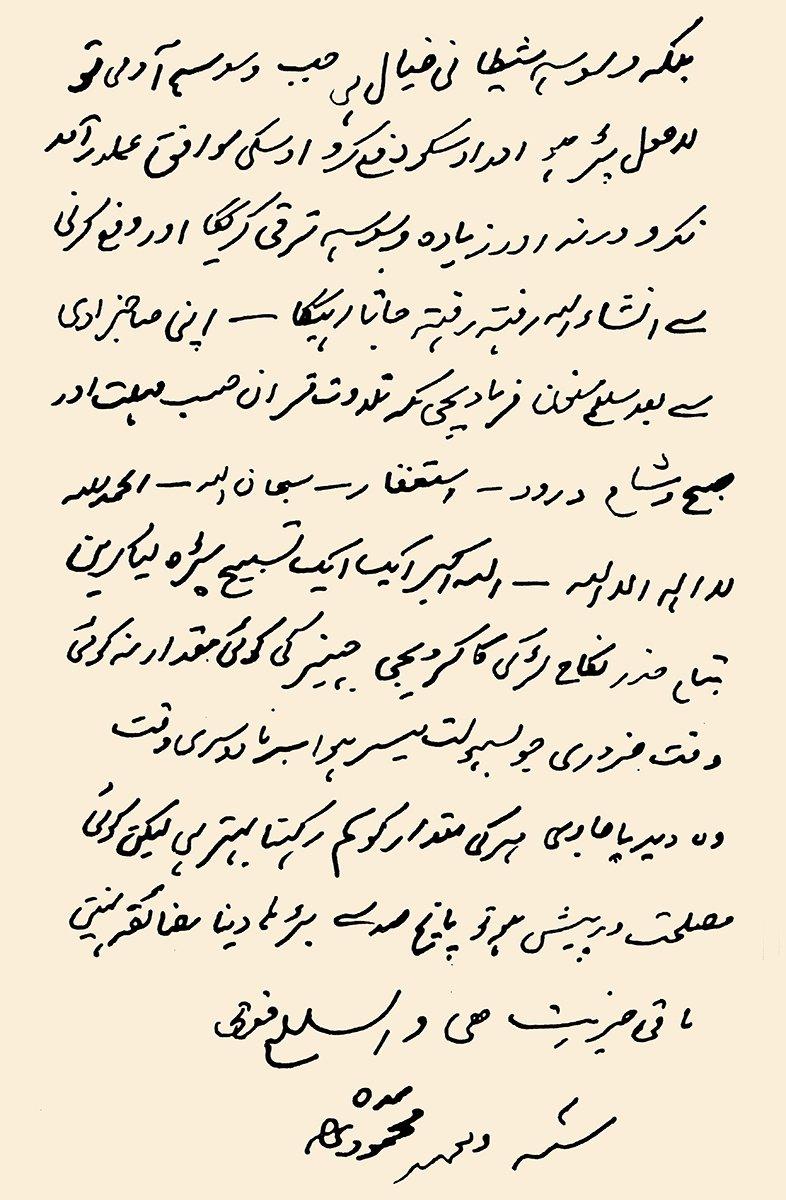 بلکہ وسوسہ شیطانی خیال ہی جب وسوسہ آوی تو
لاحول پڑہو اور اوسکو دفع کرو اوسکی موافق عملدرآمد
نکرو ورنہ اور زیادہ وسوسہ ترقی کریگا اور دفع کرنی
سے انشاء اللہ رفتہ رفتہ جاتا رہیگا — اپنی صاحبزادی
سے بعد سلام مسنون فرمادیجی کہ تلاوت قران حسب مہلت اور
صبح و شام درود — استغفار — سبحان اللہ — الحمدللہ
لا الہ الا اللہ — اللہ اکبر ایک ایک تسبیح پڑہ لیا کرین
نکاح لڑکی کا کردیجی جہیز کی کوئی مقدار نہ کوئی
وقت ضروری جو بسہولت میسر ہوا دوسری وقت
وہ دیدیا جاوی مہر کی مقدار کو کم رکہنا بہتر ہی لیکن کوئی
مصلحت درپیش ہو تو پانچ صد سے بڑہا دینا مضائقہ نہین
باقی خیریت ہی والسلام فوق
بندہ
محمود